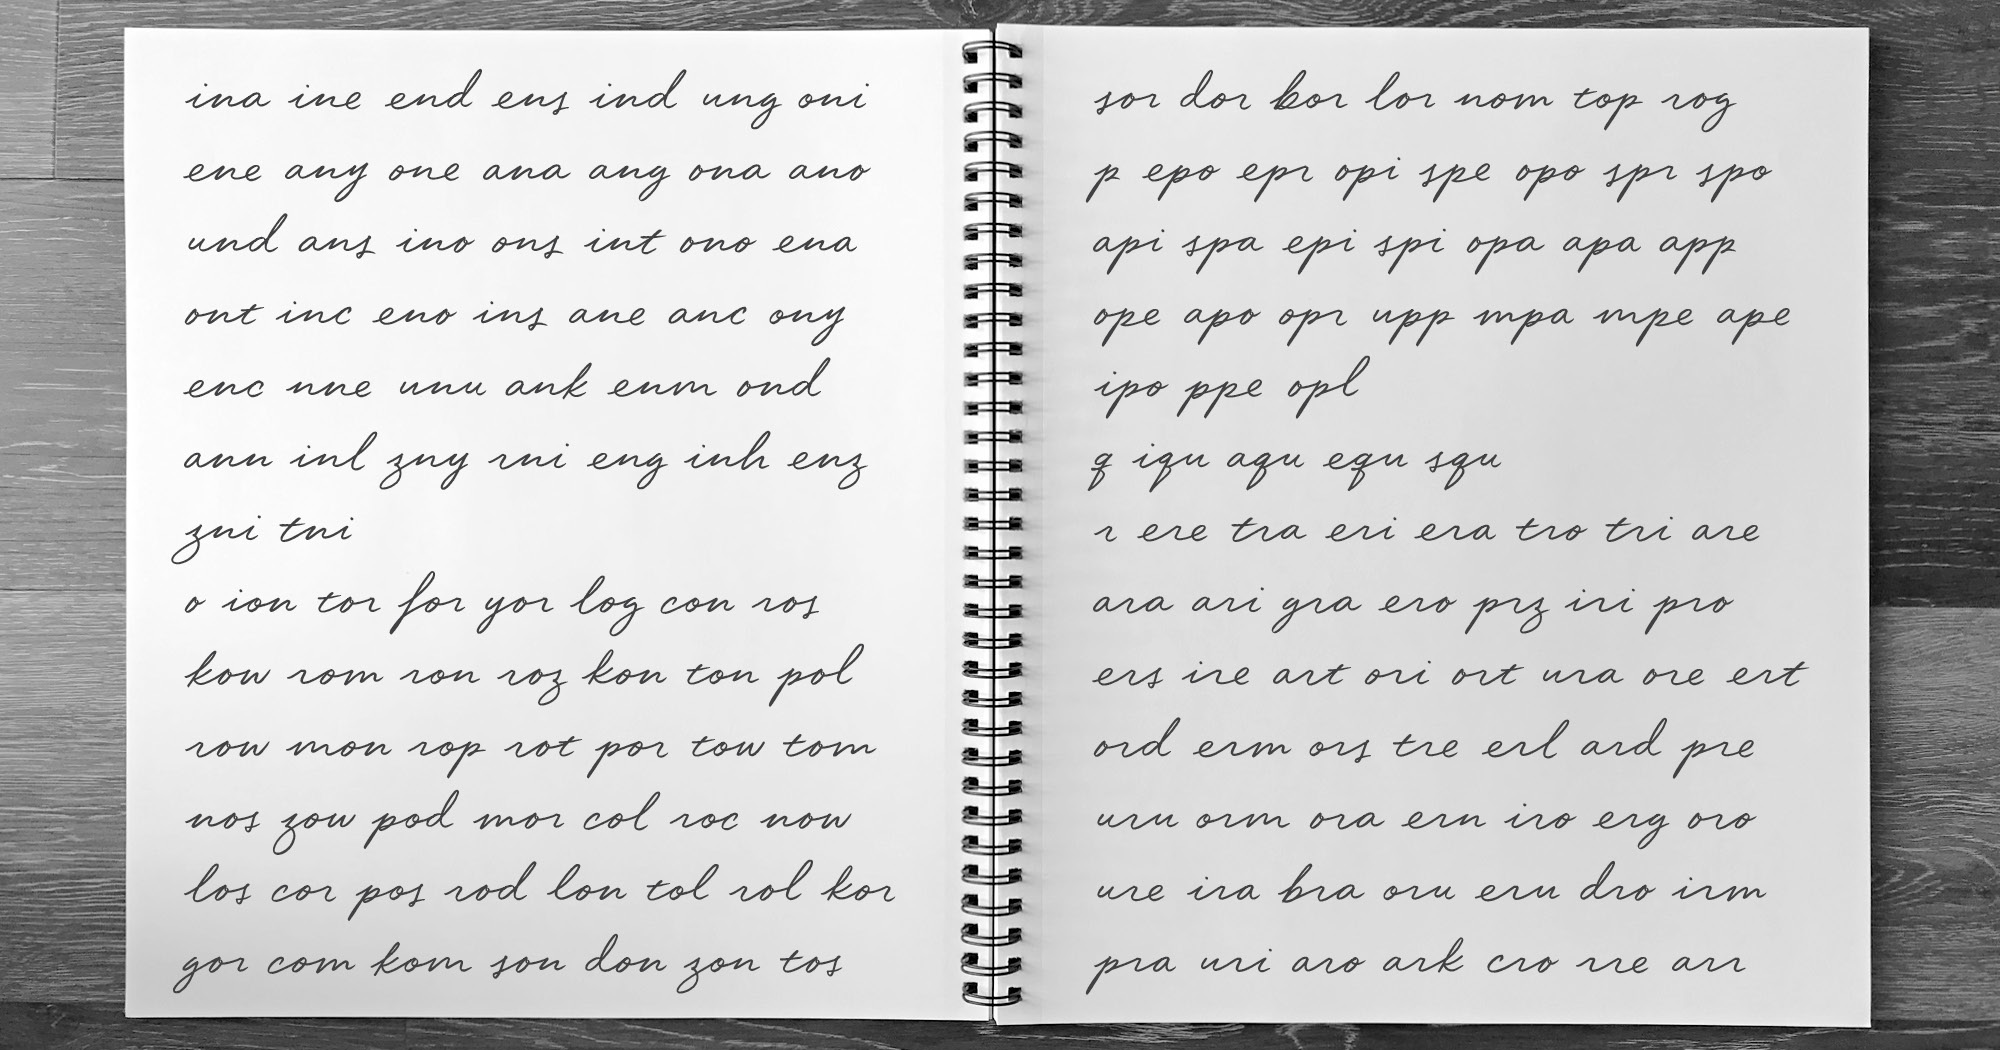 ina ine end ens ind ung oni
ene any one ana ang ona ano
und ans ino ons int ono ena
ont inc eno ins ane anc ony
enc nne unu ank enm ond
ann inl zny rni eng inh enz
zni tni
o ion tor for yor log con ros
kow rom ron roz kon ton pol
row mon rop rot por tow tom
nos zow pod mor col roc now
los cor pos rod lon tol rol kor
gor com kom son don zon tos
sor dor bor lor nom top rog
p epo epr opi spe opo spr spo
api spa epi spi opa apa app
ope apo opr upp mpa mpe ape
ipo ppe opl
q iqu aqu equ squ
r ere tra eri era tro tri are
ara ari gra ero prz iri pro
ers ire art ori ort ura ore ert
ord erm ors tre erl ard pre
uru orm ora ern iro erg oro
ure ira bra oru eru dro irm
pra uri aro ark cro rre arr